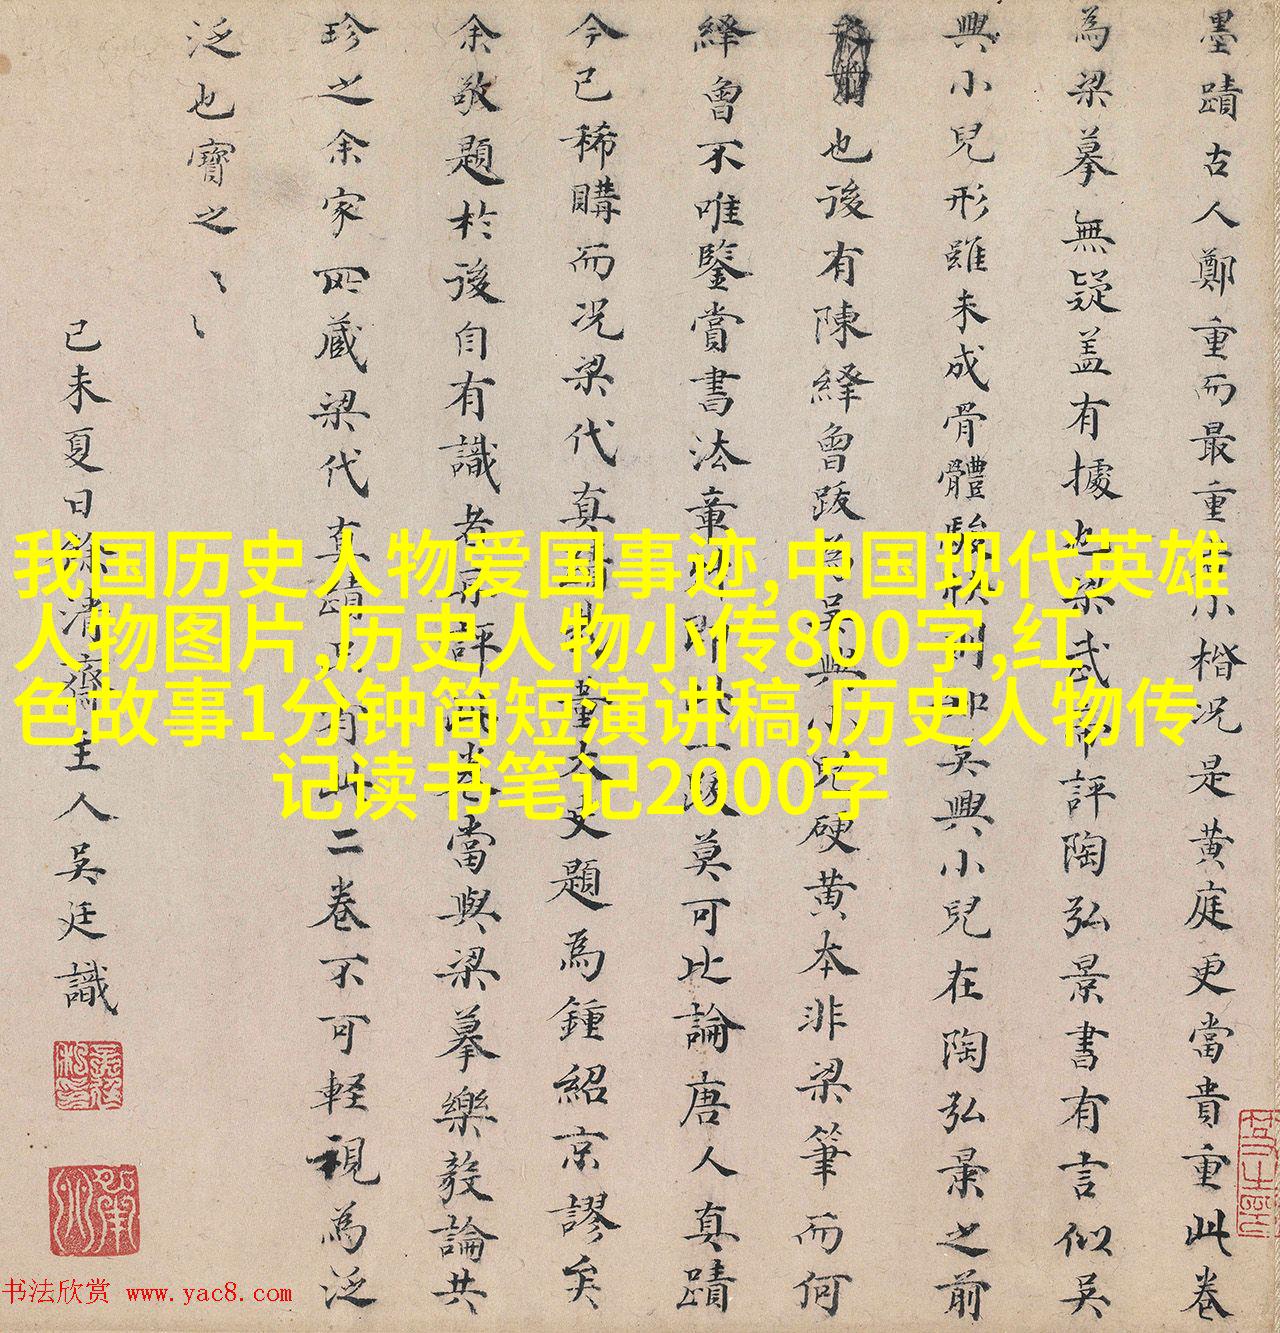 墨蹟古人鄭重而最重者小楷况是黃庭更當貴重此卷
為梁摹無疑盖有據也梁武帝評陶弘景書有言似吳
興小兒形雖未成骨體駿快則知吳興小兒在陶弘景之前
也後有陳繹曾跋為吳興小兒硬黃本非梁筆而何
繹曾不唯鑒賞書法章
即此一跋莫可比論唐人真蹟
今已稀購而况梁代真蹟
董太史題為鍾紹京謬矣
余敬題於後自有識者
評
當與梁摹樂毅論共
珍之余家所藏梁代真蹟只有此二卷不可輕視為泛
泛也寶之〻〻
己未夏日餘清齋主人吳廷識
我国历史人物爱国事迹,中国现代英雄
人物图片,历史人物小传800字,红
色故事1分钟简短演讲稿,历史人物传
记读书笔记2000字
书法欣赏 www.yac8.com